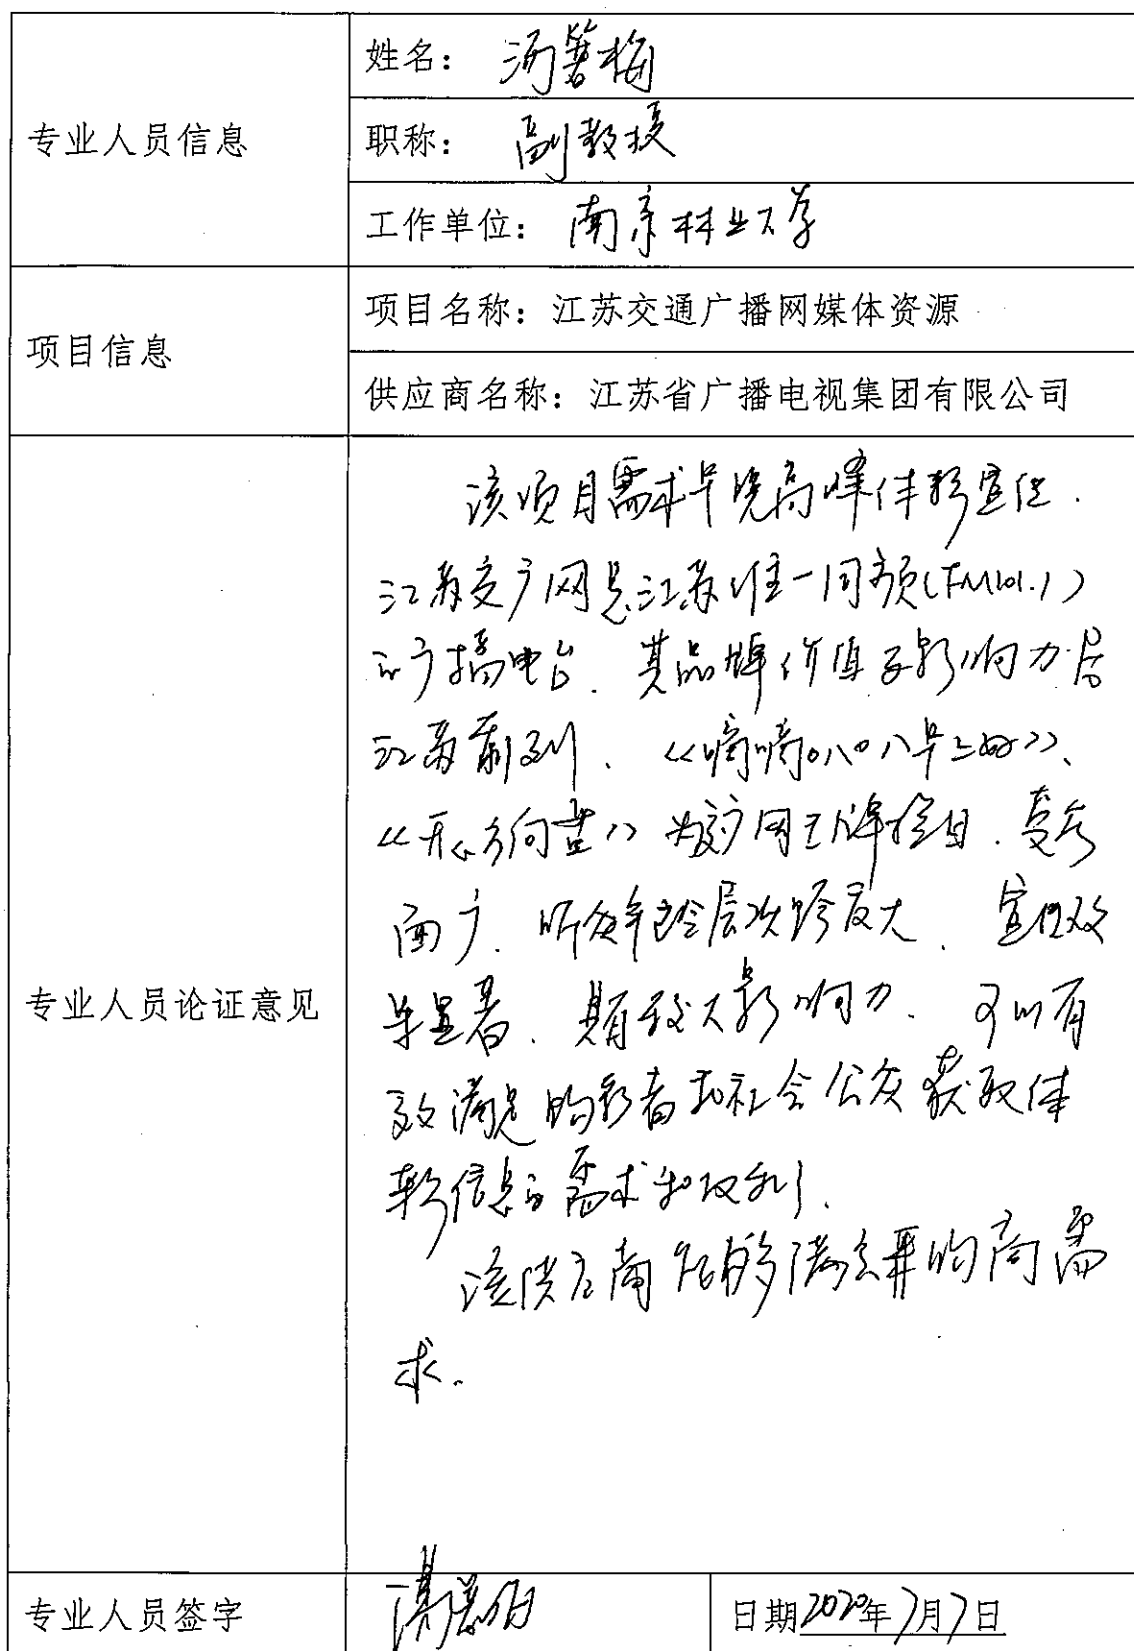 专业人员信息
姓名: 汤箬梅
职称: 副教授
工作单位: 南京林业大学
项目信息
项目名称: 江苏交通广播网媒体资源
供应商名称: 江苏省广播电视集团有限公司
专业人员论证意见
该项目需求早晚高峰体彩宣传.
江苏交广网是江苏唯一同频(FM101.1)
的广播电台、其品牌价值及影响力居
江苏前列、《嘀嘀叭叭早上好》、
《开心方向盘》为交广网王牌栏目、受众
面广、听众年龄层次跨度大、宣传效
果显著、具有较大影响力、可以有
效满足购彩者和社会公众获取体
彩信息的需求和权利.
该供应商能够满足采购商需
求.
专业人员签字
汤箬梅
日期2020年7月7日